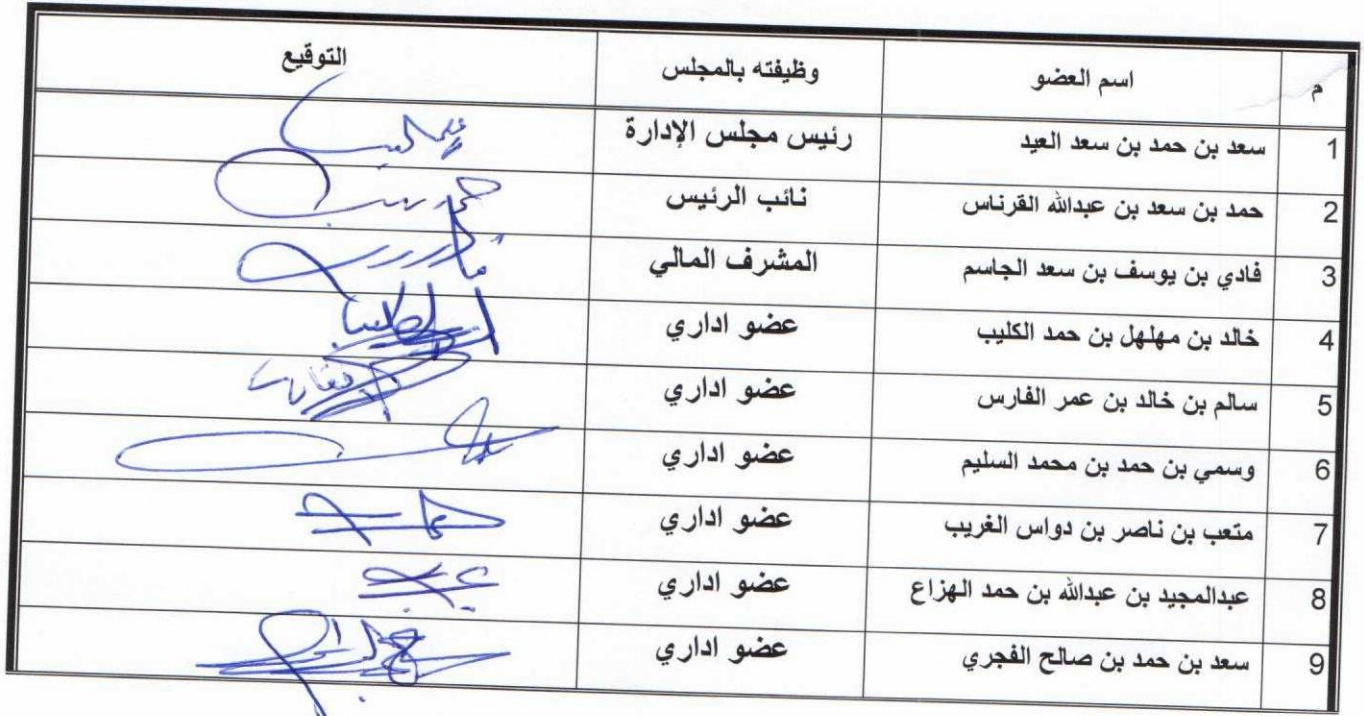 م اسم العضو وظيفته بالمجلس التوقيع
1 سعد بن حمد بن سعد العيد رئيس مجلس الإدارة
2 حمد بن سعد بن عبدالله القرناس نائب الرئيس
3 فادي بن يوسف بن سعد الجاسم المشرف المالي
4 خالد بن مهلهل بن حمد الكليب عضو اداري
5 سالم بن خالد بن عمر الفارس عضو اداري
6 وسمي بن حمد بن محمد السليم عضو اداري
7 متعب بن ناصر بن دواس الغريب عضو اداري
8 عبدالمجيد بن عبدالله بن حمد الهزاع عضو اداري
9 سعد بن حمد بن صالح الفجري عضو اداري